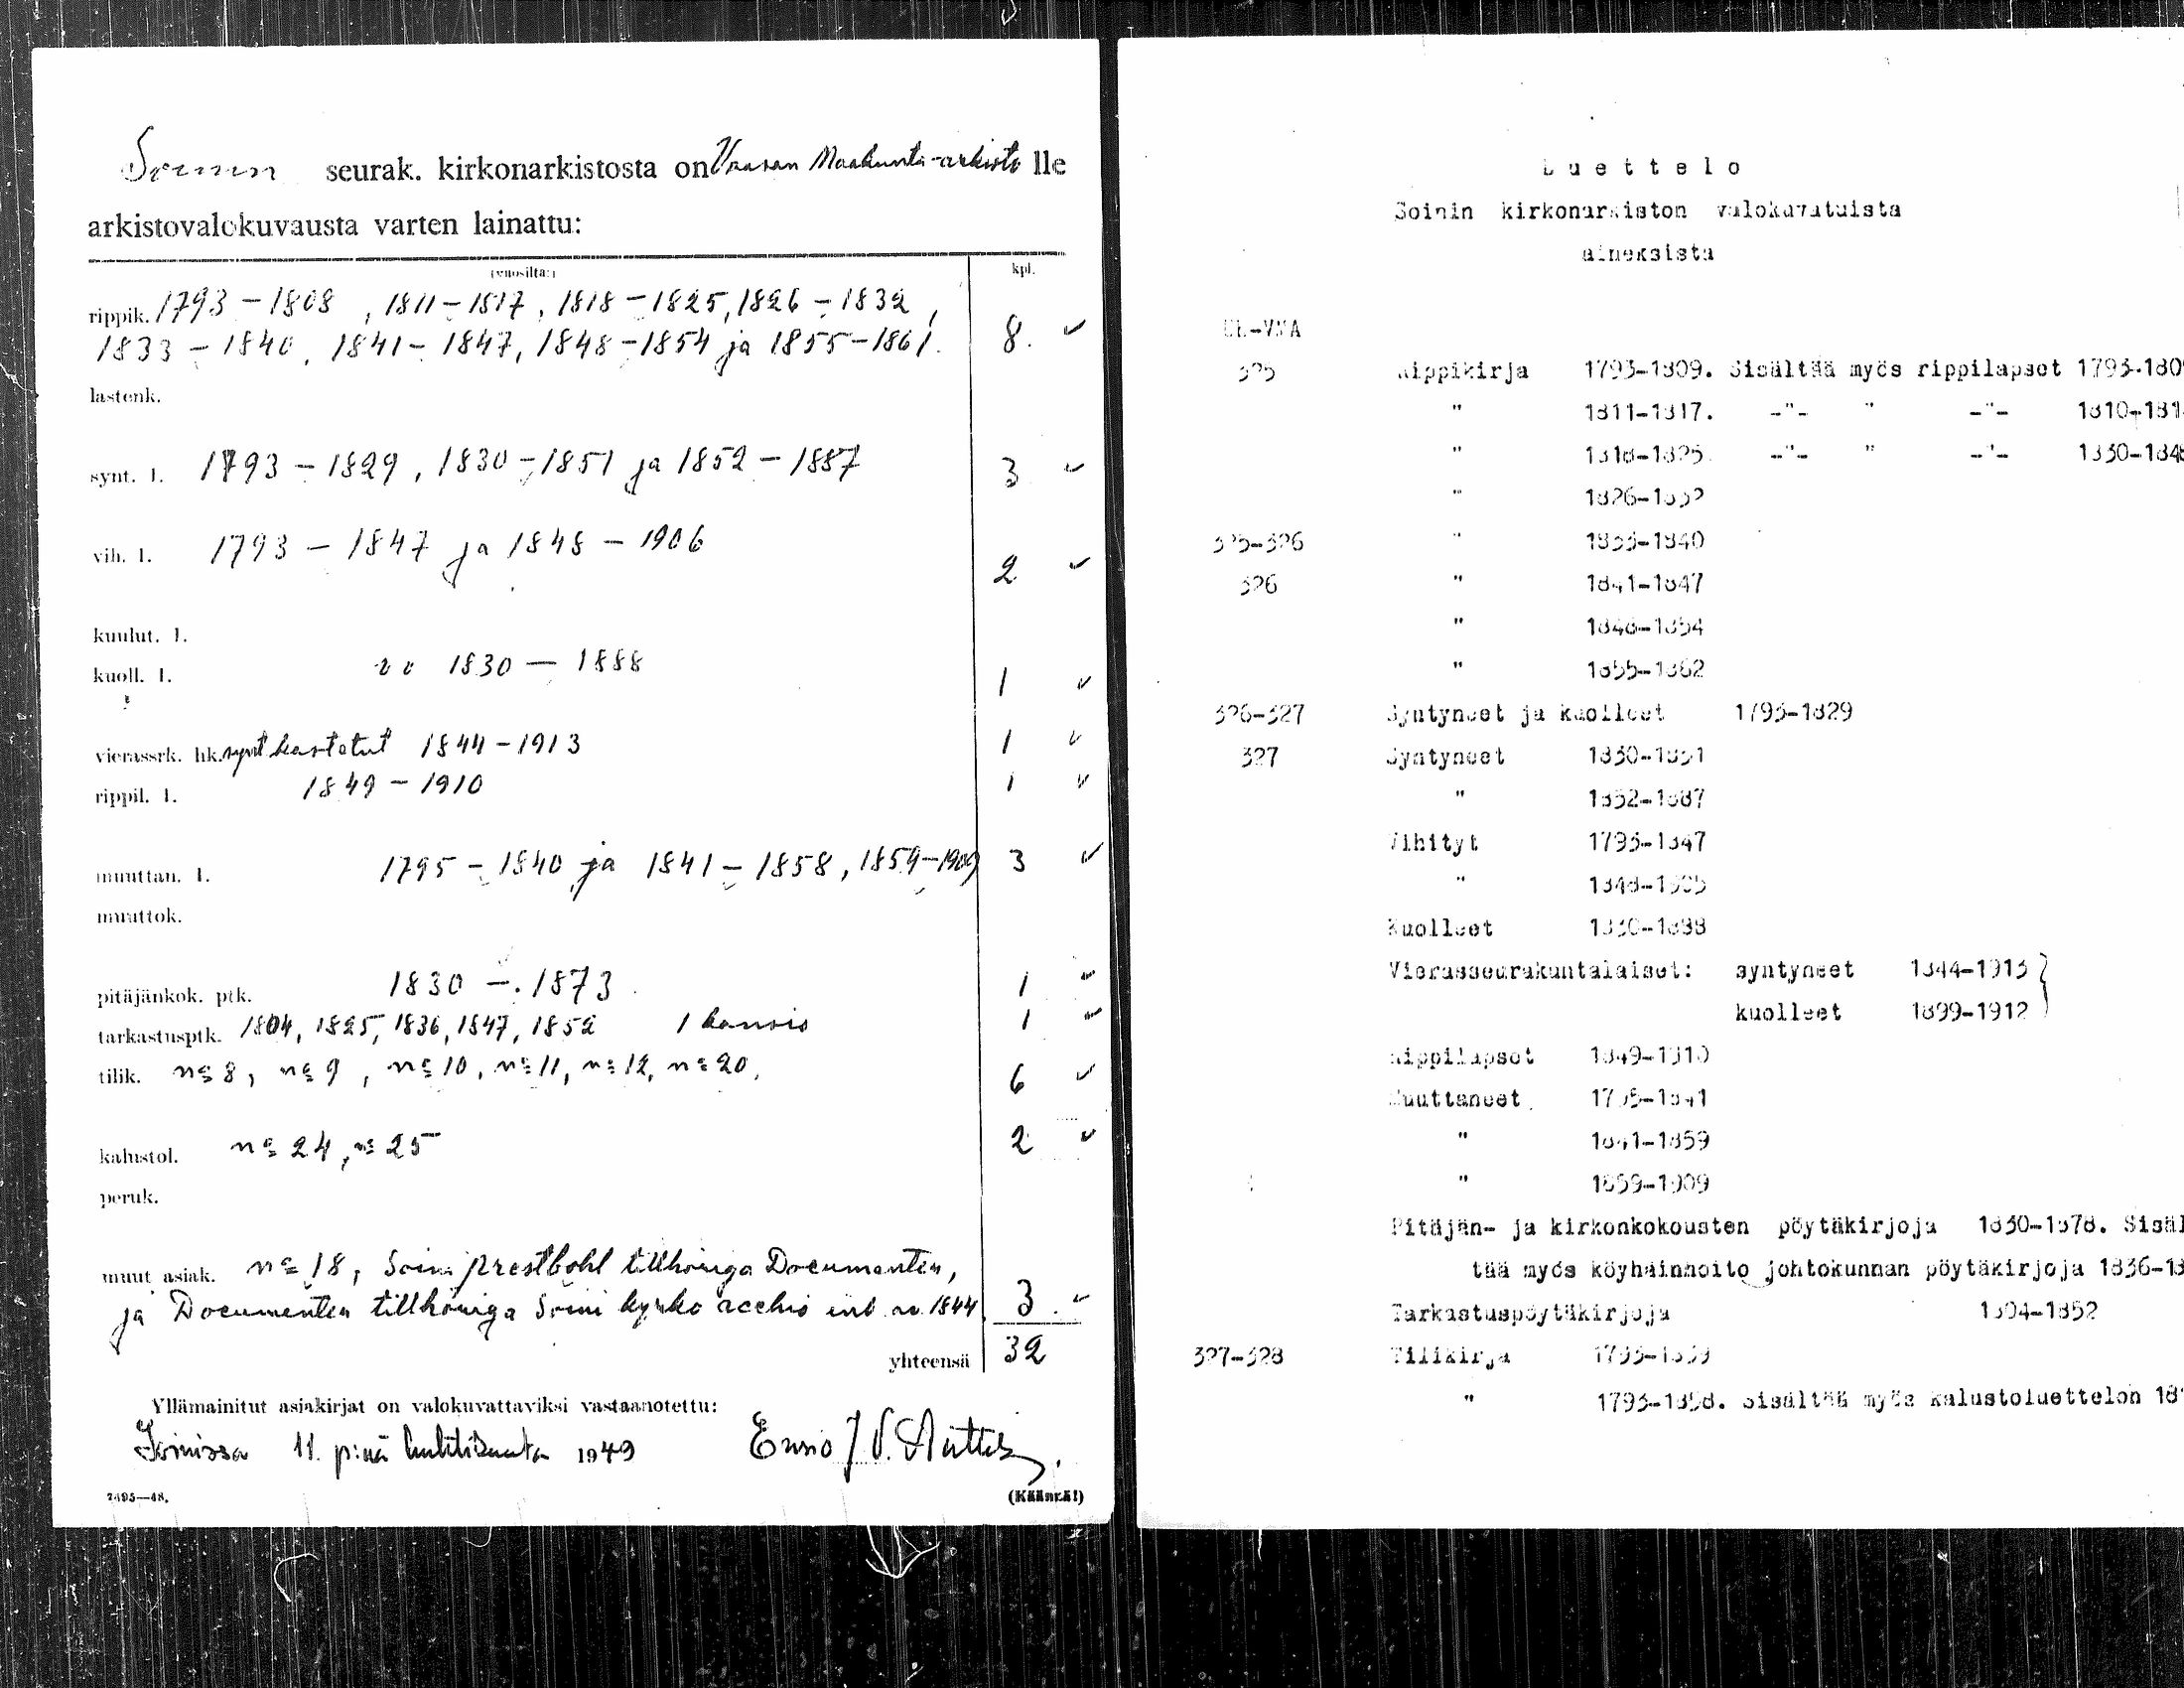 Soinin seurak. kirkonarkistosta on Vaasan Maakunta-arkisto lle
arkistovalokuvausta varten lainattu:
(vuosilta:) kpl.
rippik. 1793 – 1808, 1811 – 1817, 1818 – 1825, 1826 – 1832,
1833 – 1840, 1841 – 1847, 1848 – 1854 ja 1855 – 1861. 8.
lastenk.
synt. l. 1793 – 1829, 1830 – 1851 ja 1852 – 1887 3
vih. l. 1793 – 1847 ja 1848 – 1906 2
kuulut. l.
kuoll. l. 1830 — 1888 1
vierassrk. hk. synt kastetut 1844 – 1913 1
rippil. l. 1849 – 1910 1
muuttan. l. 1795 – 1840 ja 1841 – 1858, 1859 – 1909 3
muuttok.
pitäjänkok. ptk. 1830 – 1873 1
tarkastusptk. 1804, 1825, 1836, 1847, 1852 1 kansio 1
tilik. no 8, no 9, no 10, no 11, no 12, no 20, 6
kalustol. no 24, no 25 2
peruk.
muut asiak. no 18, Soini prestbohl tillhöriga Documenten,
ja Documenten tillhöriga Soini kyrko 1844 3
yhteensä 32
Yllämainitut asiakirjat on valokuvattaviksi vastaanotettu:
Soinissa 11. p:nä huhtikuuta 1949 Ensio J. V.
2495—48. (Käännä!)
Luettelo
Soinin kirkonarkiston valokuvatuista
aineksista
325 Rippikirja 1793-1809. Sisältää myös rippilapset 1793-180
" 1811-1817. -"- " -"- 1810-181
" 1818-1825. -"- " -"- 1830-184
" 1826-1832
325-326 " 1833-1840
326 " 1841-1847
" 1848-1854
" 1855-1862
326-327 Syntyneet ja kuolleet 1793-1829
327 Syntyneet 1830-1851
" 1852-1887
Vihityt 1793-1847
" 1848-1906
Kuolleet 1830-1888
Vierasseurakuntalaiset: syntyneet 1844-1913
kuolleet 1899-1912
Rippilapset 1849-1910
Muuttaneet 1795-1841
" 1841-1859
" 1859-1909
Pitäjän- ja kirkonkokousten pöytäkirjoja 1830-1878. Sisäl
tää myös köyhäinhoito johtokunnan pöytäkirjoja 1836-18
Tarkastuspöytäkirjoja 1804-1852
327-328 Tilikirja 1793-1839
" 1793-1858. Sisältää myös kalustoluettelon 18